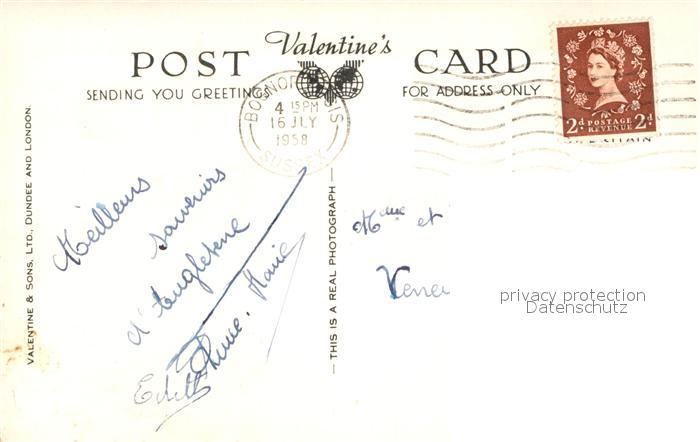 Valentine's
POST CARD
SENDING YOU GREETINGS FOR ADDRESS ONLY
BOGNOR REGIS
4 15 PM
16 JLY
1958
SUSSEX
2d POSTAGE 2d
REVENUE
VALENTINE & SONS, LTD., DUNDEE AND LONDON.
Meilleurs
souvenirs
d'Angleterre
Marie
— THIS IS A REAL PHOTOGRAPH —
Mme et
privacy protection
Datenschutz